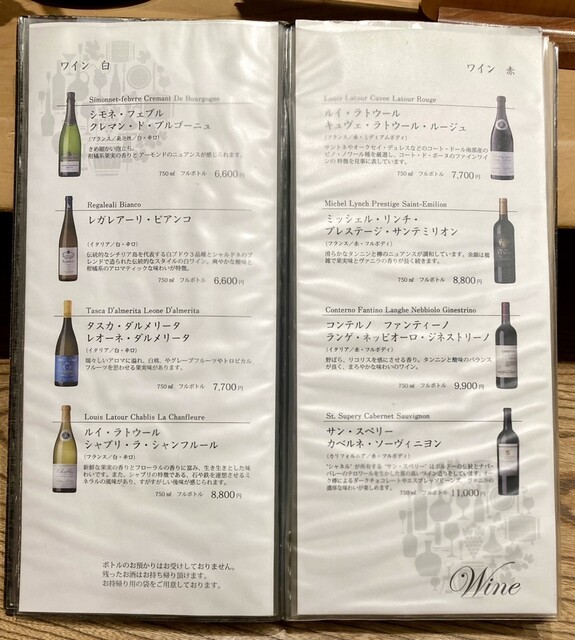 ワイン 白
Simonnet-febvre Cremant De Bourgogne
シモネ・フェブル
クレマン・ド・ブルゴーニュ
きめ細かい泡立ち。
柑橘系果実の香りとアーモンドのニュアンスが感じられます。
750 ml フルボトル 6,600円
Regaleali Bianco
レガレアーリ・ビアンコ
(イタリア/白・辛口)
伝統的なシチリア島を代表する白ブドウ3品種とシャルドネのブ
レンドで造られた伝統的なスタイルの白ワイン。爽やかな酸味と
柑橘系のアロマティックな味わいが特徴。
750 ml フルボトル 6,600円
Tasca D'almerita Leone D'almerita
タスカ・ダルメリータ
レオーネ・ダルメリータ
(イタリア/白・辛口)
瑞々しいアロマに溢れ、白桃、やグレープフルーツやトロピカル
フルーツを思わせる果実味があります。
750 ml フルボトル 7,700円
Louis Latour Chablis La Chanfleure
ルイ・ラトゥール
シャブリ・ラ・シャンフルール
(フランス/白・辛口)
新鮮な果実の香りとフローラルの香りに富み、生き生きとした味
わいです。また、シャブリの特徴である、石や鉄を連想させるミ
ネラルの風味があり、すがすがしい後味が感じられます。
750 ml フルボトル 8,800円
ボトルのお預かりはお受けしておりません。
残ったお酒はお持ち帰り頂けます。
お持帰り用の袋をご用意しております。
ワイン 赤
Louis Latour Cuvee Latour Rouge
ルイ・ラトゥール
キュヴェ・ラトゥール・ルージュ
(フランス/赤・ミディアムボディ)
サントネイやオークセイ・デュレスなどのコート・ドール南部産の
ピノ・ノワール種を厳選し、コート・ド・ボーヌのファインワイ
ンの特徴を見事に表しています。
750 ml フルボトル 7,700円
Michel Lynch Prestige Saint-Emilion
ミッシェル・リンチ・
プレステージ・サンテミリオン
(フランス/赤・フルボディ)
滑らかなタンニンと樽のニュアンスが調和しています。余韻は複
雑で果実味とヴァニラの香りが長く続きます。
750 ml フルボトル 8,800円
Conterno Fantino Langhe Nebbiolo Ginestrino
コンテルノ ファンティーノ
ランゲ・ネッビオーロ・ジネストリーノ
(イタリア/赤・フルボディ)
野ばら、リコリスを感じさせる香り。タンニンと酸味のバランス
が良く、まろやかな味わいのワイン。
750 ml フルボトル 9,900円
St. Supery Cabernet Sauvignon
サン・スペリー
カベルネ・ソーヴィニヨン
(カリフォルニア/赤・フルボディ)
"シャネル" が所有する "サン・スペリー" はボルドーの伝統とナパ・
バレーのテロワールを生かした
750 ml フルボトル 11,000円
Wine